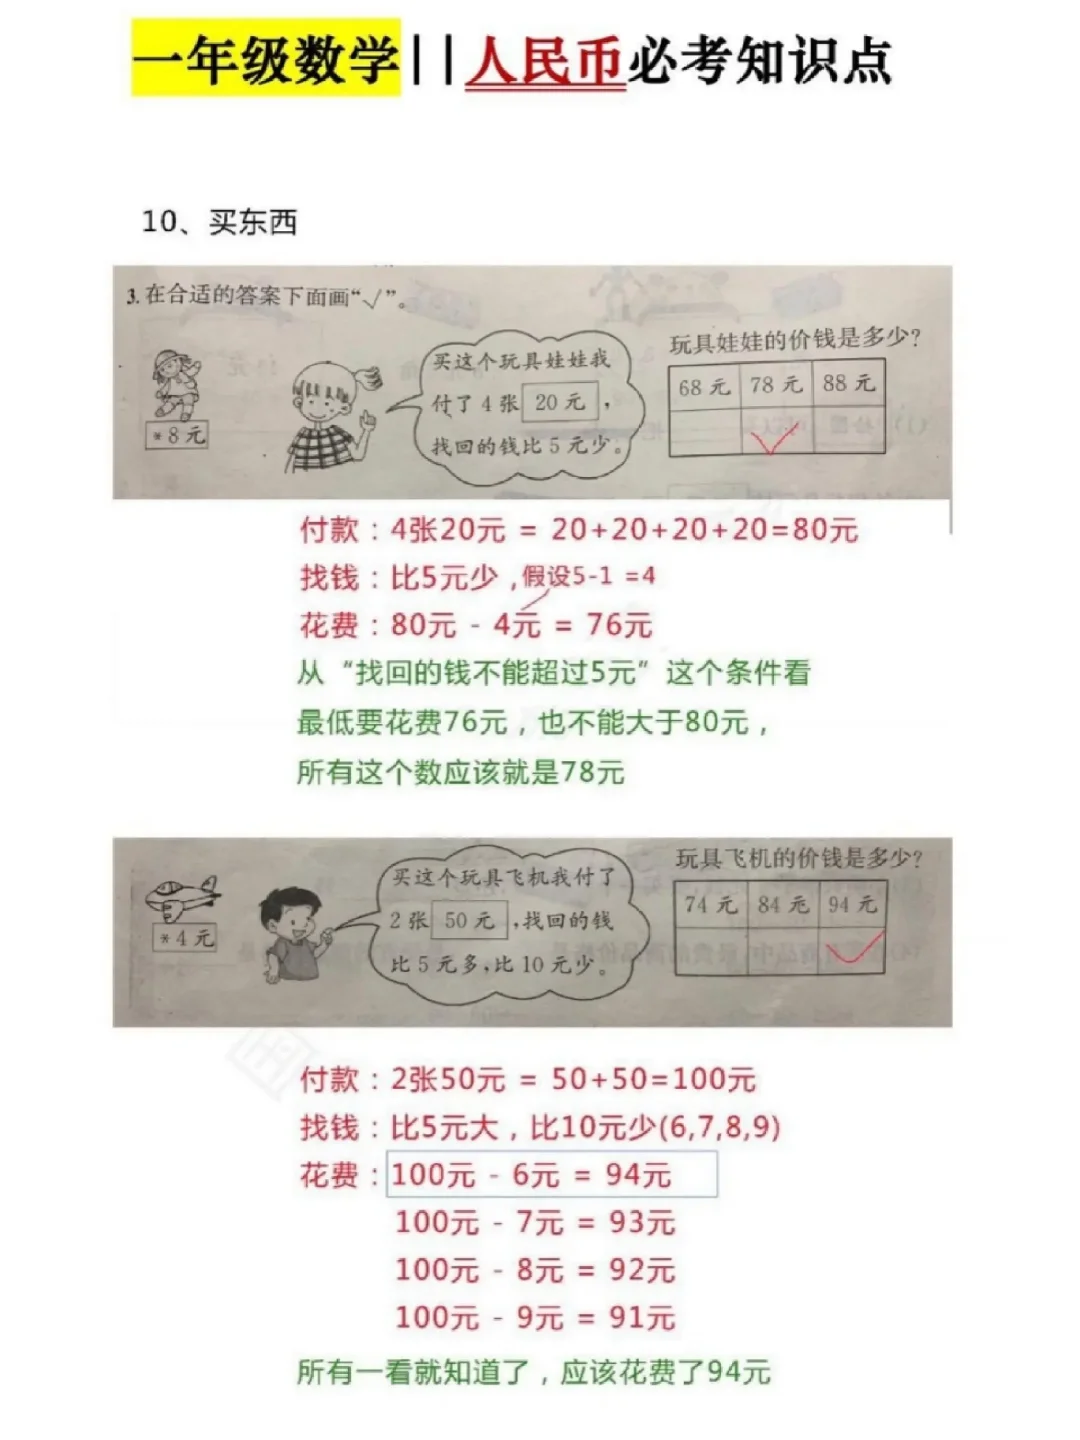 一年级数学||人民币必考知识点
10、买东西
3.在合适的答案下面画“√”。
*8元
买这个玩具娃娃我
付了4张 20元，
找回的钱比5元少。
玩具娃娃的价钱是多少?
68元 78元 88元
付款：4张20元 = 20+20+20+20=80元
找钱：比5元少，假设5-1 =4
花费：80元 - 4元 = 76元
从“找回的钱不能超过5元”这个条件看
最低要花费76元，也不能大于80元，
所有这个数应该就是78元
*4元
买这个玩具飞机我付了
2张 50元，找回的钱
比5元多，比10元少。
玩具飞机的价钱是多少?
74元 84元 94元
付款：2张50元 = 50+50=100元
找钱：比5元大，比10元少(6,7,8,9)
花费：100元 - 6元 = 94元
100元 - 7元 = 93元
100元 - 8元 = 92元
100元 - 9元 = 91元
所有一看就知道了，应该花费了94元